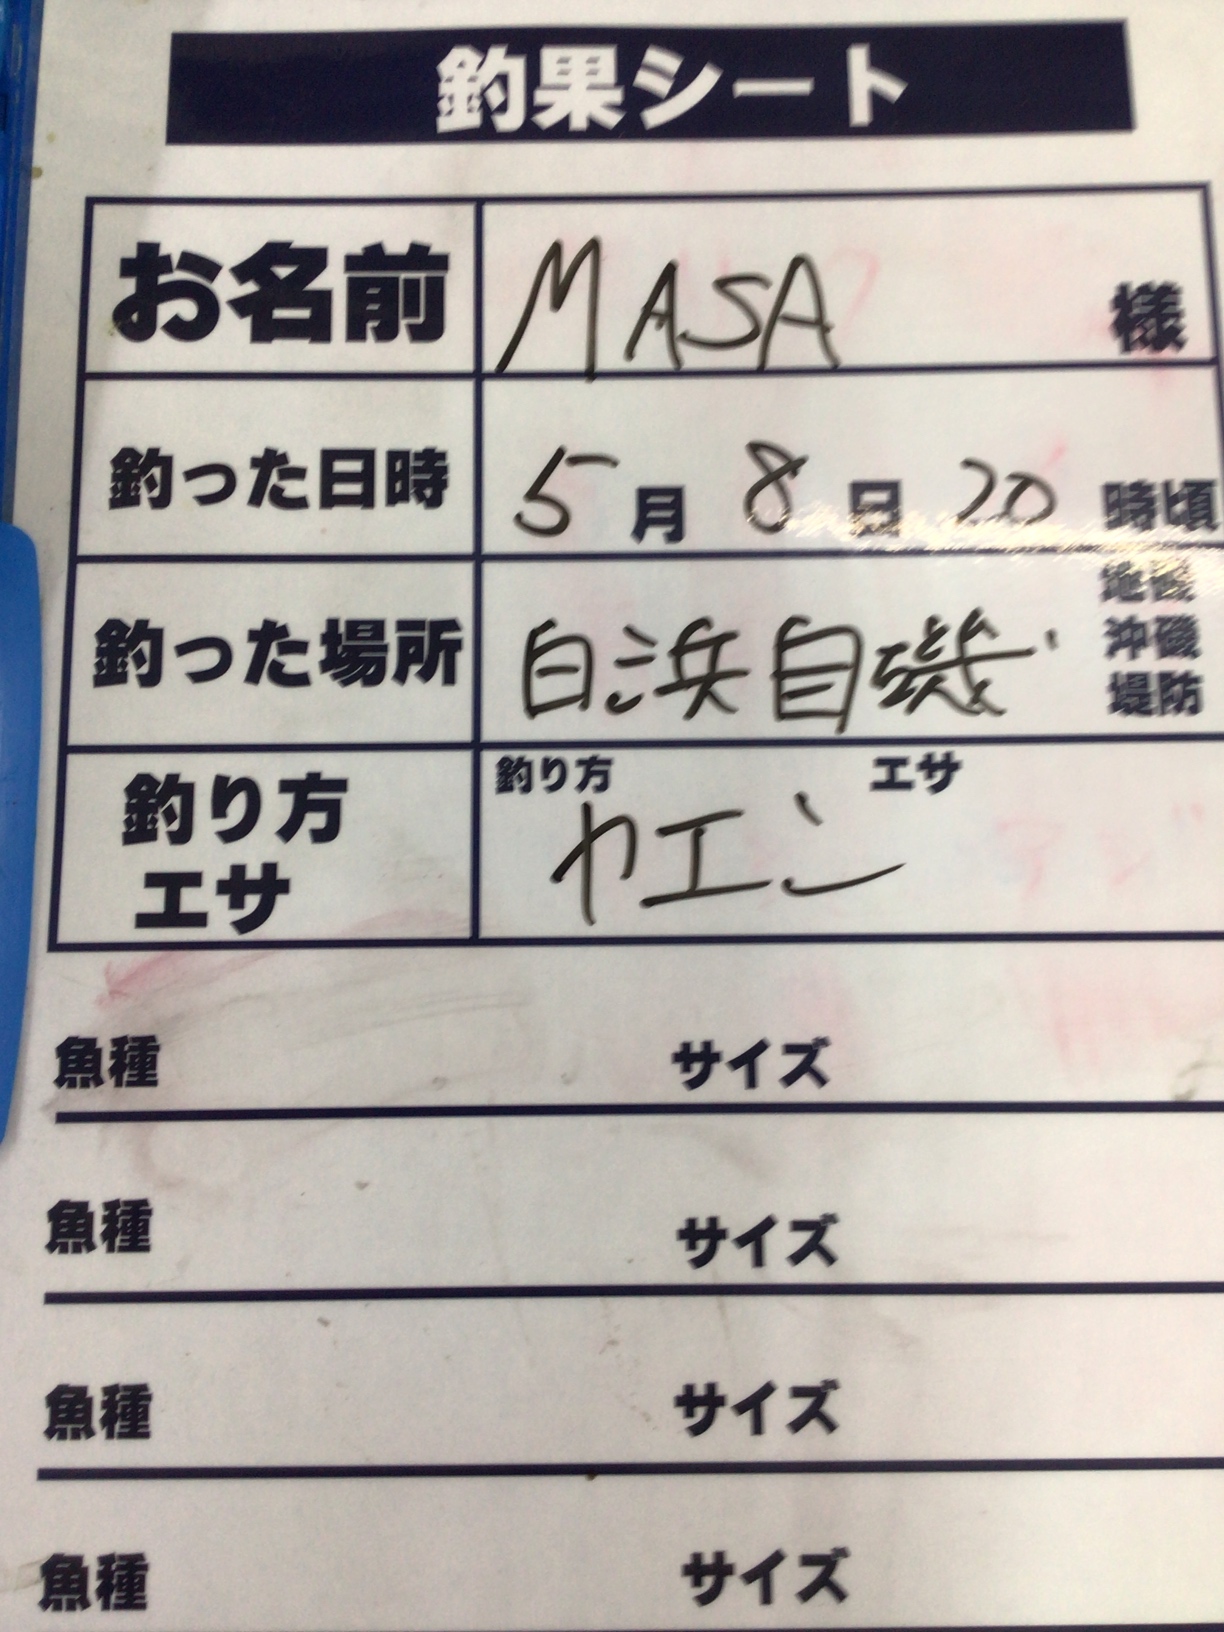 釣果シート
お名前 MASA 様
釣った日時 5月8日20時頃
釣った場所 白浜自磯
地磯
沖磯
堤防
釣り方 エサ
釣り方
エサ
ヤエン
魚種 サイズ
魚種 サイズ
魚種 サイズ
魚種 サイズ